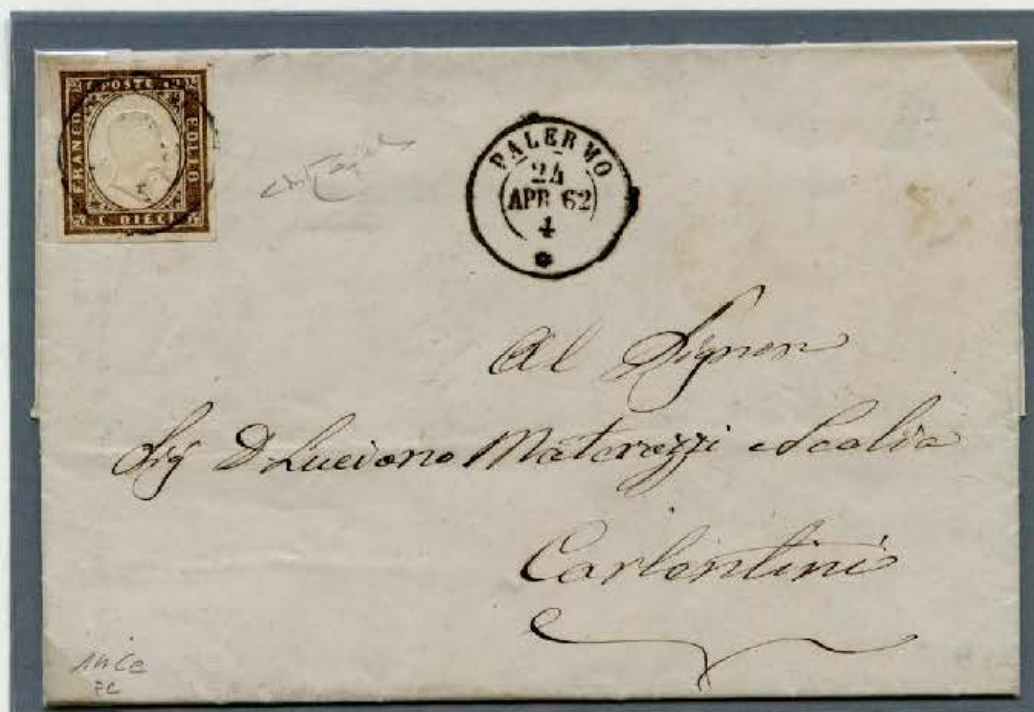 C. POSTE
FRANCO
BOLLO
C. DIECI
PALERMO
24
APR 62
4
Al Signor
Sig D Luciano Materazzi e Scalia
Carlentini
14Ce
FC